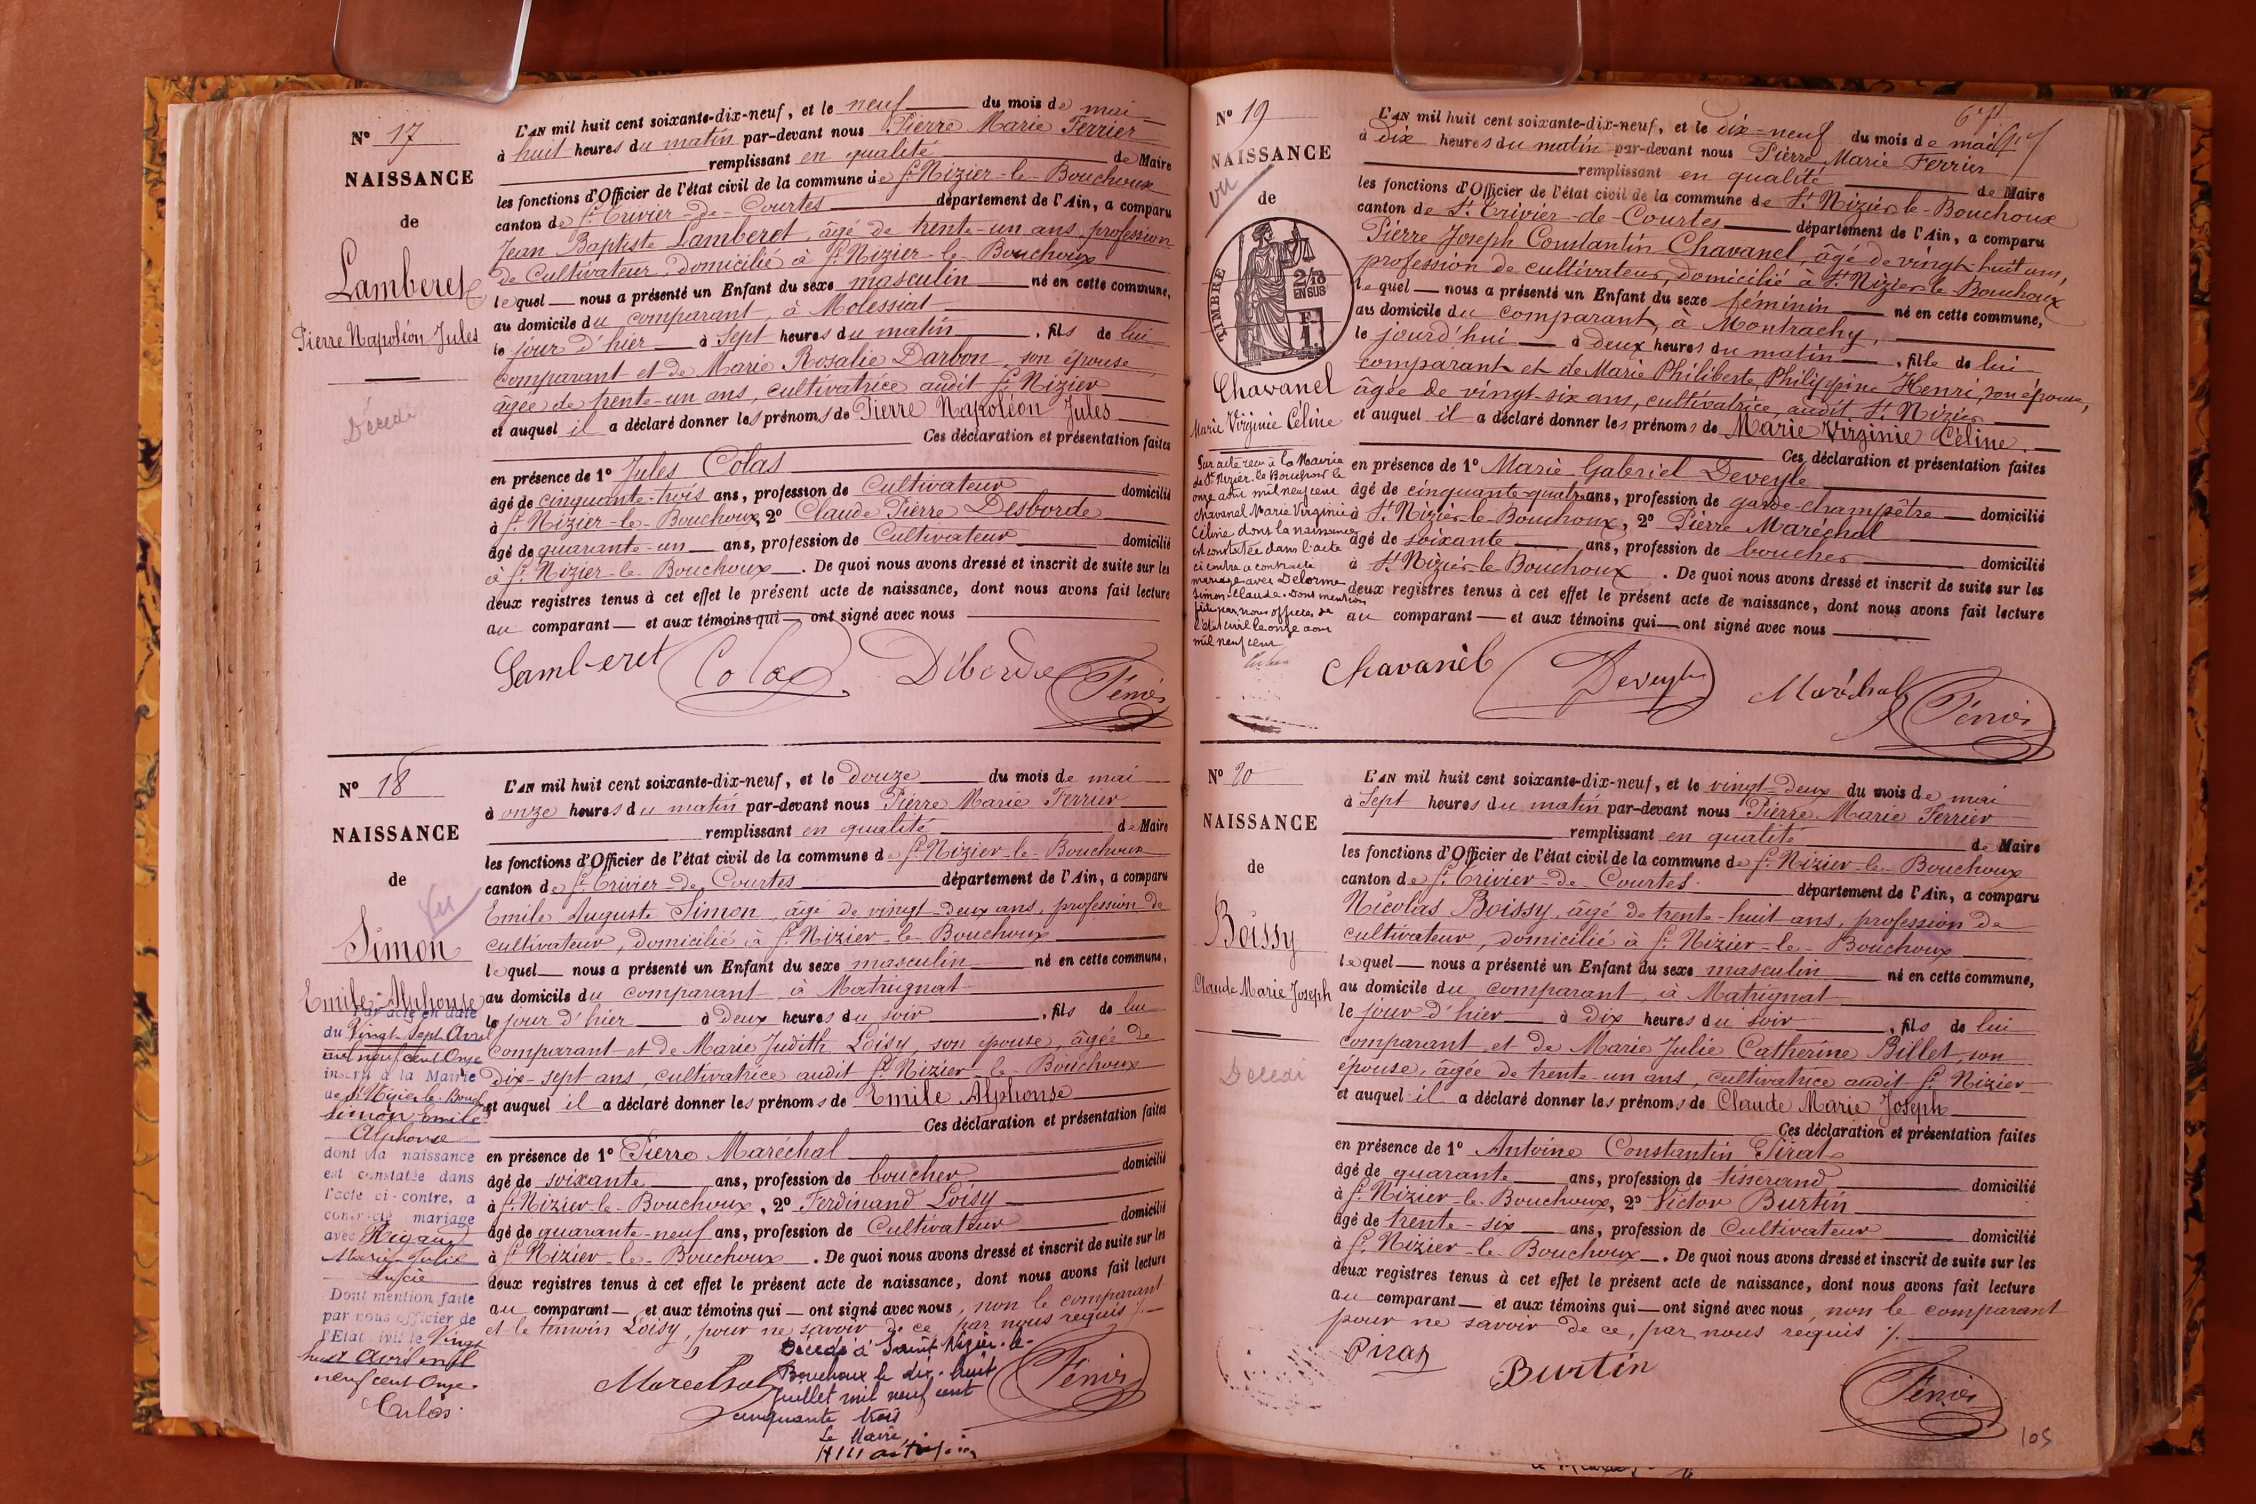 N° 17
NAISSANCE
de
Lamberet
Pierre Napoléon Jules
Décédé
L'AN mil huit cent soixante-dix-neuf, et le neuf du mois de mai
à huit heures du matin par-devant nous Pierre Marie Ferrier
remplissant en qualité de Maire
les fonctions d'Officier de l'état civil de la commune de St Nizier-le-Bouchoux
canton de St Trivier-de-Courtes département de l'Ain, a comparu
Jean Baptiste Lamberet, âgé de trente-un ans, profession
de Cultivateur, domicilié à St Nizier-le-Bouchoux
lequel nous a présenté un Enfant du sexe masculin né en cette commune,
au domicile du comparant, à Molessiat
le jour d'hier à Sept heures du matin, fils de lui
comparant et de Marie Rosalie Darbon, son épouse,
âgée de trente-un ans, cultivatrice audit St Nizier
et auquel il a déclaré donner les prénoms de Pierre Napoléon Jules
Ces déclaration et présentation faites
en présence de 1° Jules Colas
âgé de cinquante-trois ans, profession de Cultivateur domicilié
à St Nizier-le-Bouchoux, 2° Claude Pierre Desborde
âgé de quarante-un ans, profession de Cultivateur domicilié
à St Nizier-le-Bouchoux. De quoi nous avons dressé et inscrit de suite sur les
deux registres tenus à cet effet le présent acte de naissance, dont nous avons fait lecture
au comparant et aux témoins qui ont signé avec nous
Lamberet Colas Déborde Férrier
N° 18
NAISSANCE
de
Vu
Simon
Emile Alphonse
Par acte en date
du Vingt Sept Avril
mil neuf cent Onze
inscrit à la Mairie
de St Nizier-le-Bouchx
Simon Emile
Alphonse
dont la naissance
est constatée dans
l'acte ci-contre, a
contracté mariage
avec Rigaud
Marie Julie
Lucie
Dont mention faite
par nous officier de
l'Etat civil le Vingt
huit Avril mil
neuf cent Onze.
Colas
L'AN mil huit cent soixante-dix-neuf, et le douze du mois de mai
à onze heures du matin par-devant nous Pierre Marie Ferrier
remplissant en qualité de Maire
les fonctions d'Officier de l'état civil de la commune de St Nizier-le-Bouchoux
canton de St Trivier-de-Courtes département de l'Ain, a comparu
Emile Auguste Simon, âgé de vingt-deux ans, profession de
cultivateur, domicilié à St Nizier-le-Bouchoux
lequel nous a présenté un Enfant du sexe masculin né en cette commune,
au domicile du comparant à Matrignat
le jour d'hier à deux heures du soir, fils de lui
comparant et de Marie Judith Loisy, son épouse, âgée de
dix-sept ans, cultivatrice audit St Nizier-le-Bouchoux
et auquel il a déclaré donner les prénoms de Emile Alphonse
Ces déclaration et présentation faites
en présence de 1° Pierre Maréchal
âgé de soixante ans, profession de boucher domicilié
à St Nizier-le-Bouchoux, 2° Ferdinand Loisy
âgé de quarante-neuf ans, profession de Cultivateur domicilié
à St Nizier-le-Bouchoux. De quoi nous avons dressé et inscrit de suite sur les
deux registres tenus à cet effet le présent acte de naissance, dont nous avons fait lecture
au comparant et aux témoins qui ont signé avec nous, non le comparant
et le temoin Loisy, pour ne savoir de ce, par nous requis /.
Marechal Férrier
Décédé à Saint-Nizier-le-
Bouchoux le dix-huit
Juillet mil neuf cent
cinquante trois
Le Maire
N° 19
NAISSANCE
vu
de
TIMBRE
2/10
EN SUS
F.
1.
Chavanel
Marie Virginie Céline
Par acte reçu à la Mairie
de St Nizier-le-Bouchoux le
onze aout mil neuf cent
Chavanel Marie Virginie
Céline dont la naissance
est constatée dans l'acte
ci contre a contracté
mariage avec Delorme
Simon Claude. Dont mention
faite par nous officier de
l'état civil le onze aout
mil neuf cent
L'AN mil huit cent soixante-dix-neuf, et le dix-neuf du mois de mai
à dix heures du matin par-devant nous Pierre Marie Ferrier
remplissant en qualité de Maire
les fonctions d'Officier de l'état civil de la commune de St Nizier-le-Bouchoux
canton de St Trivier-de-Courtes département de l'Ain, a comparu
Pierre Joseph Constantin Chavanel, âgé de vingt-huit ans,
profession de cultivateur, domicilié à St Nizier-le-Bouchoux
lequel nous a présenté un Enfant du sexe féminin né en cette commune,
au domicile du comparant, à Montrachy,
le jourd'hui à deux heures du matin, fille de lui
comparant et de Marie Philiberte Philippine Henri, son épouse,
âgée de vingt-six ans, cultivatrice, audit St Nizier
et auquel il a déclaré donner les prénoms de Marie Virginie Céline.
Ces déclaration et présentation faites
en présence de 1° Marie Gabriel Deveyle
âgé de cinquante quatre ans, profession de garde-champêtre domicilié
à St Nizier-le-Bouchoux, 2° Pierre Maréchal
âgé de soixante ans, profession de boucher domicilié
à St Nizier-le-Bouchoux. De quoi nous avons dressé et inscrit de suite sur les
deux registres tenus à cet effet le présent acte de naissance, dont nous avons fait lecture
au comparant et aux témoins qui ont signé avec nous
Chavanel Deveyle Maréchal Férrier
N° 20
NAISSANCE
de
Boissy
Claude Marie Joseph
Décédé
L'AN mil huit cent soixante-dix-neuf, et le vingt-deux du mois de mai
à Sept heures du matin par-devant nous Pierre Marie Ferrier
remplissant en qualité de Maire
les fonctions d'Officier de l'état civil de la commune de St Nizier-le-Bouchoux
canton de St Trivier-de-Courtes. département de l'Ain, a comparu
Nicolas Boissy, âgé de trente-huit ans, profession de
cultivateur, domicilié à St Nizier-le-Bouchoux
lequel nous a présenté un Enfant du sexe masculin né en cette commune,
au domicile du comparant, à Matrignat
le jour d'hier à dix heures du soir, fils de lui
comparant et de Marie Julie Catherine Billet, son
épouse, âgée de trente-un ans, cultivatrice audit St Nizier
et auquel il a déclaré donner les prénoms de Claude Marie Joseph
Ces déclaration et présentation faites
en présence de 1° Antoine Constantin Pirat
âgé de quarante ans, profession de tisserand domicilié
à St Nizier-le-Bouchoux, 2° Victor Burtin
âgé de trente-six ans, profession de Cultivateur domicilié
à St Nizier-le-Bouchoux. De quoi nous avons dressé et inscrit de suite sur les
deux registres tenus à cet effet le présent acte de naissance, dont nous avons fait lecture
au comparant et aux témoins qui ont signé avec nous, non le comparant
pour ne savoir de ce, par nous requis /.
Pirat Burtin Férrier
105